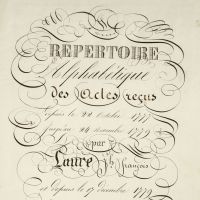 REPERTOIRE
Alphabétique
des Actes reçus
Depuis le 22 octobre 1777
jusqu'au 24 décembre 1779
par
Faure Jh françois
et depuis le 17 décembre 1779